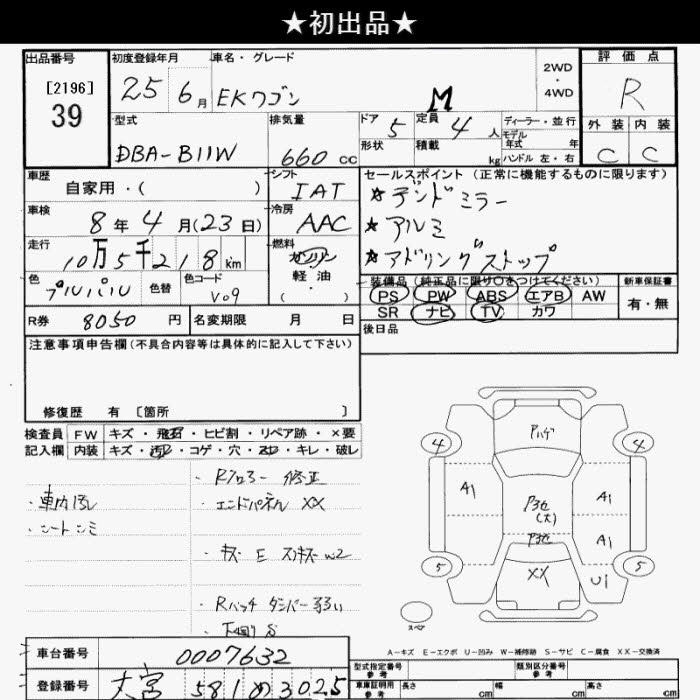 ★初出品★
出品番号
[2196]
39
初度登録年月
25 6月
車名・グレード
EKワゴン M
2WD
・
4WD
評価点
R
型式
DBA-B11W
排気量
660 cc
ドア
5
定員
4 人
形状
積載
kg
ディーラー・並行
モデル
年式 年
ハンドル 左・右
外装 内装
C C
車歴
自家用・( )
シフト
IAT
セールスポイント(正常に機能するものに限ります)
★デンドミラー
★アルミ
★アドリングストップ
車検
8年4月(23日)
冷房
AAC
走行
10万5千218km
燃料
ガソリン
軽・油
( )
色
プルパル
色替
色コード
V09
装備品(純正品に限り○をつけてください)
PS PW ABS エアB AW
SR ナビ TV カワ
新車保証書
有・無
R券 8050 円
名変期限 月 日
後日品
注意事項申告欄(不具合内容等は具体的に記入して下さい)
修復歴 有 〔箇所 〕
検査員 FW キズ・飛石・ヒビ割・リペア跡・×要
記入欄 内装 キズ・汚れ・コゲ・穴・ ・キレ・破れ
・車内汚レ
・シートシミ
・Rフロアー 修正
・エンドパネル XX
・キズ E スリキズ w2
・Rハッチ ダンパー弱い
・下廻りS
アハゲ
4 4
A1 A1
P3他
(大)
P3他
A1
XX
U1
5 5
スペア
A-キズ E-エクボ U-凹み W-補修跡 S-サビ C-腐食 XX-交換済
車台番号 0007632
登録番号 大宮 581 め 3025
型式指定番号
参考
類別区分番号
参考
車庫証明用
参考
長さ cm
幅 cm
高さ cm